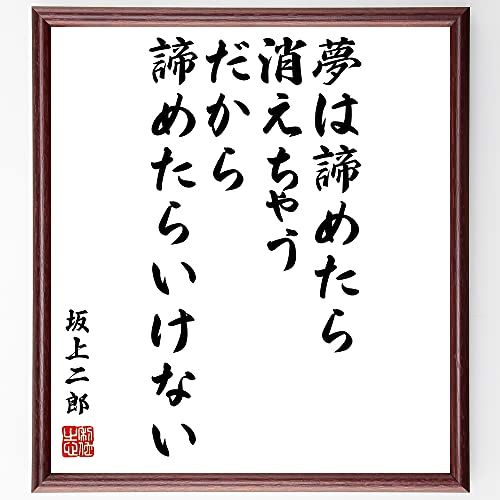 夢は諦めたら
消えちゃう
だから
諦めたらいけない
坂上二郎